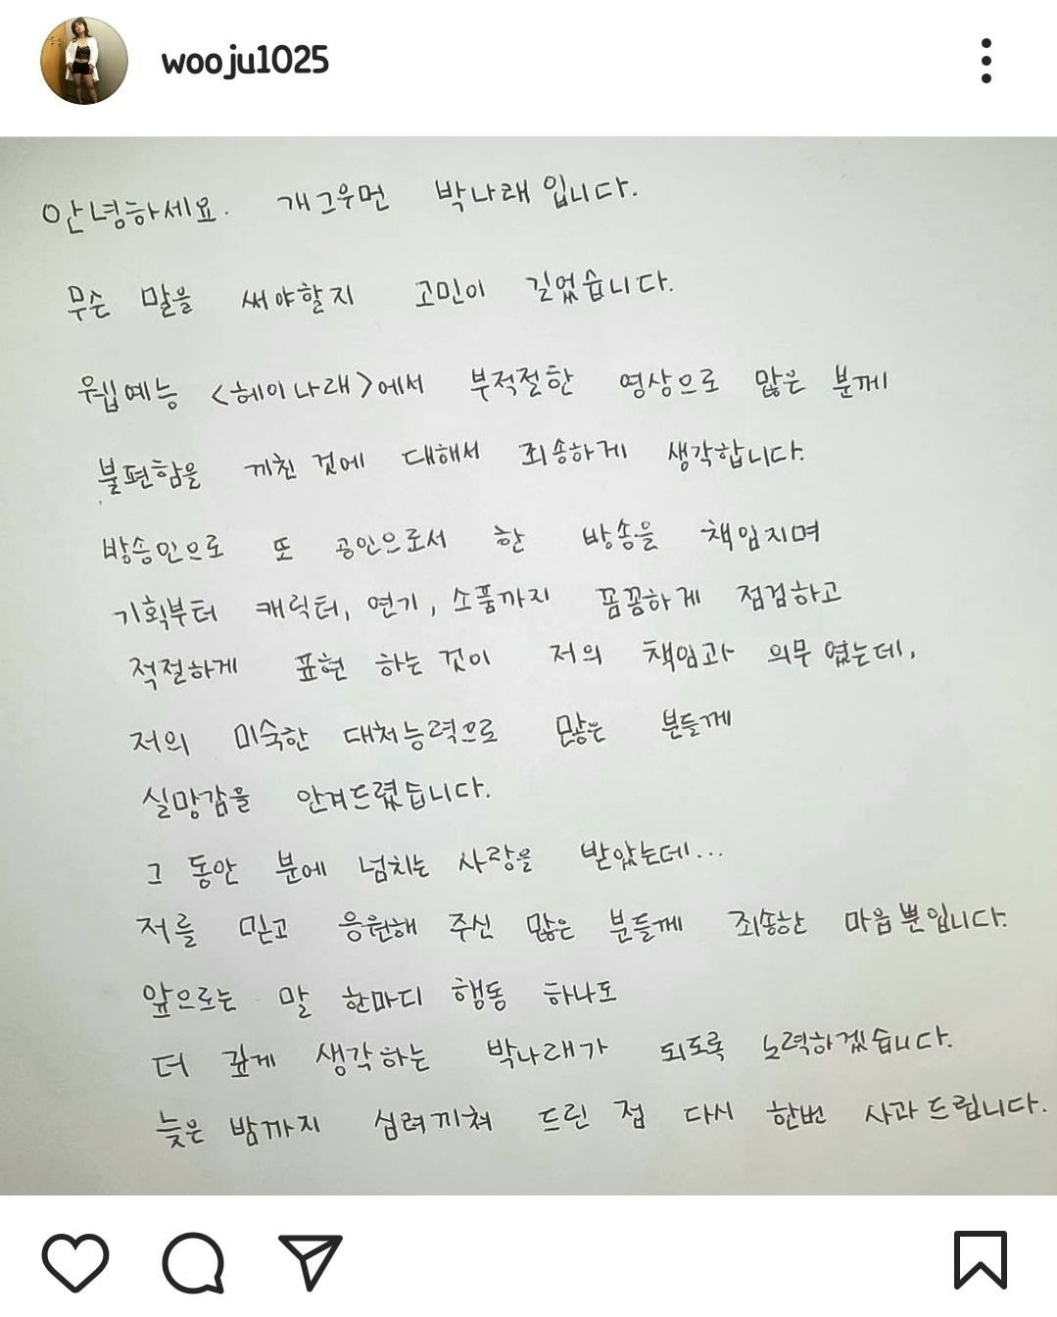 wooju1025
안녕하세요. 개그우먼 박나래 입니다.
무슨 말을 써야할지 고민이 길었습니다.
웹예능 <헤이나래>에서 부적절한 영상으로 많은 분께
불편함을 끼친 것에 대해서 죄송하게 생각합니다.
방송인으로 또 공인으로서 한 방송을 책임지며
기획부터 캐릭터, 연기, 소품까지 꼼꼼하게 점검하고
적절하게 표현 하는 것이 저의 책임과 의무 였는데,
저의 미숙한 대처능력으로 많은 분들께
실망감을 안겨드렸습니다.
그 동안 분에 넘치는 사랑을 받았는데...
저를 믿고 응원해 주신 많은 분들께 죄송한 마음뿐입니다.
앞으로는 말 한마디 행동 하나도
더 깊게 생각하는 박나래가 되도록 노력하겠습니다.
늦은 밤까지 심려끼쳐 드린 점 다시 한번 사과드립니다.